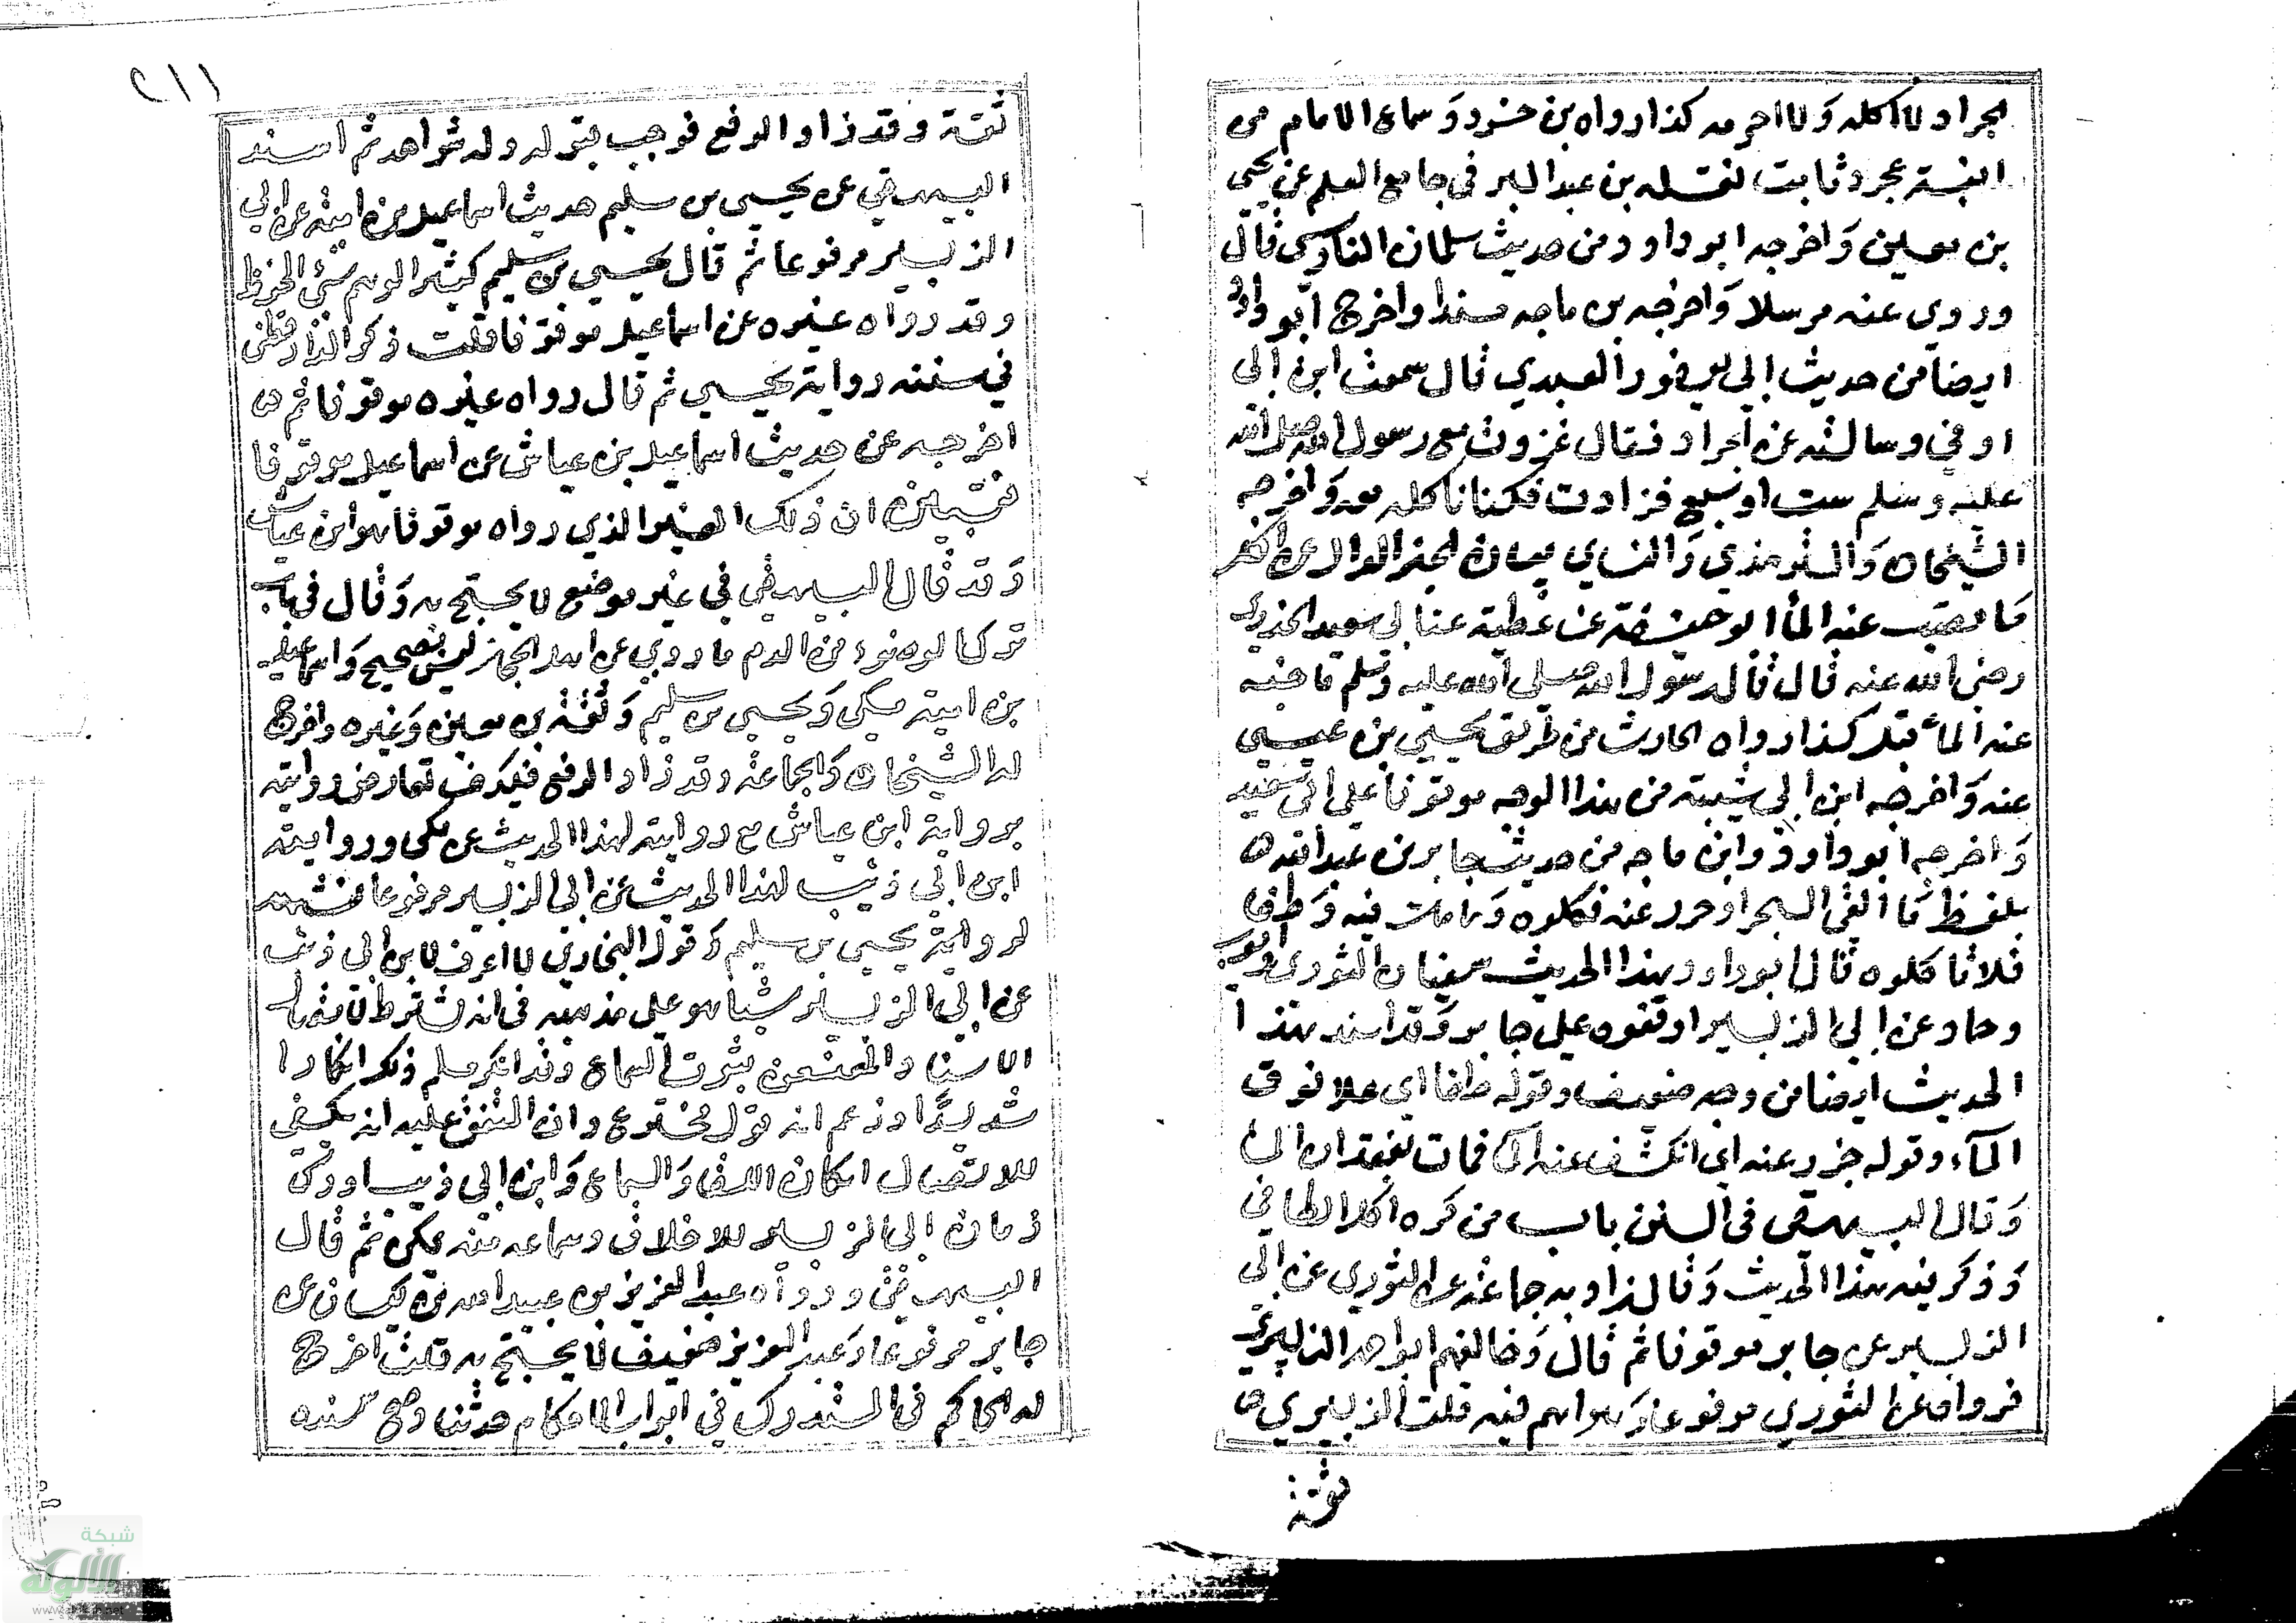 الجراد لا اكله ولا احرمه كذا رواه بن خسرو وسماع الامام من
ابنة عجرد ثابت نقله بن عبد البر في جامع العلم عن يحيى
بن معين واخرجه ابو داود من حديث سلمان الفارسي قال
وروي عنه مرسلا واخرجه بن ماجه مسندا واخرج ابو داود
ايضا من حديث ابي يعفور العبدي قال سمعت ابن ابي
اوفي وسالته عن الجراد فقال غزوت مع رسول الله صلى الله
عليه وسلم ست او سبع غزاوت فكنا ناكله معه واخرجه
الشيخان والترمذي والنساي بيان الخبر الدال على اكل
ما نضب عنه الما ابو حنيفة عن عطية عن ابي سعيد الخدري
رضي الله عنه قال قال رسول الله صلى الله عليه وسلم ما
عنه الماء فكل كذا رواه الحارث من طريق يحيي بن عيسي
عنه واخرجه ابن ابي شيبة من هذا الوجه موقوفا على ابي سعيد
واخرجه ابو داود وابن ماجه من حديث جابر بن عبد الله
بلفظ ما القى البحر او جزر عنه فكلوه وما مات فيه وطفا
فلا تاكلوه قال ابو داود هذا الحديث سفيان الثوري وايوب
وحماد عن ابي الزبير اوقفوه علي جابر وقد اسند هذا
الحديث ايضا من وجه ضعيف وقوله طفا اي علا فوق
الماء وقوله جزر عنه اي انكشف عنه الماء فمات بفقدان الماء
وقال البيهقي في السنن باب من كره اكل الطافي
وذكر فيه هذا الحديث وقال رواه جماعة عن الثوري عن ابي
الزبير عن جابر موقوفا ثم قال وخالفهم ابو احمد الزبيري
فرواه عن الثوري مرفوعا وهو واهم فيه قلت الزبيري
ثقة
٢١١
ثقة وقد زاد الرفع فوجب قبوله وله شواهد ثم اسند
البيهقي عن يحيي بن سليم حديث اسماعيل بن امية عن ابي
الزبير مرفوعا ثم قال يحيي بن سليم كثير الوهم سئ الحفظ
وقد رواه غيره عن اسماعيل موقوفا قلت ذكر الدارقطني
في سننه رواية يحيي ثم قال رواه غيره موقوفا ثم
اخرجه عن حديث اسماعيل بن عياش عن اسماعيل موقوفا
فتبين ان ذلك الغير الذي رواه موقوفا هو ابن عياش
وقد قال البيهقي في غير موضع لا يحتج به وقال في باب
ترك الوضوء من الدم ما روي عن اهل الحجاز ليس بصحيح واسماعيل
بن امية مكي ويحيي بن سليم وثقة بن معين وغيره واخرج
له الشيخان والجماعة وقد زاد الرفع فكيف تعارض روايته
برواية ابن عياش مع روايته لهذا الحديث عن مكي ورواية
ابن ابي ذئب لهذا الحديث عن ابي الزبير مرفوعا تشهد
لرواية يحيي بن سليم وقول البخاري لا اعرف لابن ابي ذئب
عن ابي الزبير شيا هو علي مذهبه في انه يشترط لاتصال
الاسناد المعنعن ثبوت السماع وقد انكر مسلم ذلك انكارا
شديدا وزعم انه قول مخترع وان المتفق عليه انه يكفي
للاتصال امكان اللقا والسماع وابن ابي ذيب ادرك
زمان ابي الزبير بلا خلاف وسماعه منه ممكن ثم قال
البيهقي ورواه عبد العزيز بن عبيد الله بن كيسان عن
جابر مرفوعا وعبد العزيز ضعيف لا يحتج به قلت اخرج
له الحاكم في المستدرك في ابواب الاحكام حديثا وصح سنده
شبكة
الألوكة